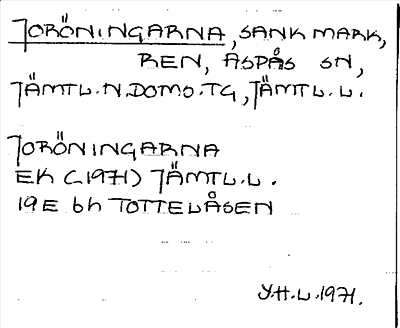 JORÖNINGARNA, SANK MARK,
REN, ÅSPÅS SN,
JÄMTL.N.DOMS.TG, JÄMTL.L.
JORÖNINGARNA
EK (1971) JÄMTL.L.
19E 6h TOTTELÅSEN
Y.H.L. 1971.